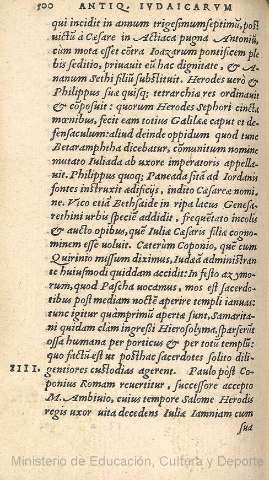 500 ANTIQ. IVDAICARVM
qui incidit in annum trigesimumseptimũ, post
victũ à Cæsare in Actiaca pugna Antoniũ,
cùm mota esset cõtra Ioazarum pontificem ple
bis seditio, priuauit eũ hac dignitate, & A-
nanum Sethi filiũ substituit. Herodes verò &
Philippus sua quisq; tetrarchia res ordinauit
& cõposuit: quorum Herodes Sephori cincta
mœnibus, fecit eam totius Galilææ caput et de-
fensaculum: aliud deinde oppidum quod tunc
Betaramphtha dicebatur, cõmunitum nomine
mutato Iuliada ab uxore imperatoris appella-
uit. Philippus quoq; Paneada sitã ad Iordanis
fontes instruxit ædificijs, indito Cæsareæ nomi,
ne. Vico etiã Bethsaide in ripa lacus Genesa-
rethini urbis speciẽ addidit, frequẽtato incolis
& aucto opibus, quẽ Iulia Cæsaris filia cogno-
minem esse uoluit. Caterùm Coponio, quẽ cum
Quirinio missum diximus, Iudæã administran
te huiusmodi quiddam accidit: In festo azymo-
rum, quod Pascha uocamus, mos est sacerdo-
tibus post mediam noctẽ aperire templi ianuas:
tunc igitur quãprimũ aperta sunt, Samarita-
ni quidam clàm ingressi Hierosolyma, sparserũt
ossa humana per porticus & per totũ templũ:
quo factũ est ut posthac sacerdotes solito dili-
XIII. gentiores custodias agerent. Paulo pòst Co-
ponius Romam reuertitur, successore accepto
M. Ambiuio, cuius tempore Salome Herodis
regis uxor uita decedens Iuliæ Iamniam cum
sua
Ministerio de Educación, Cultura y Deporte